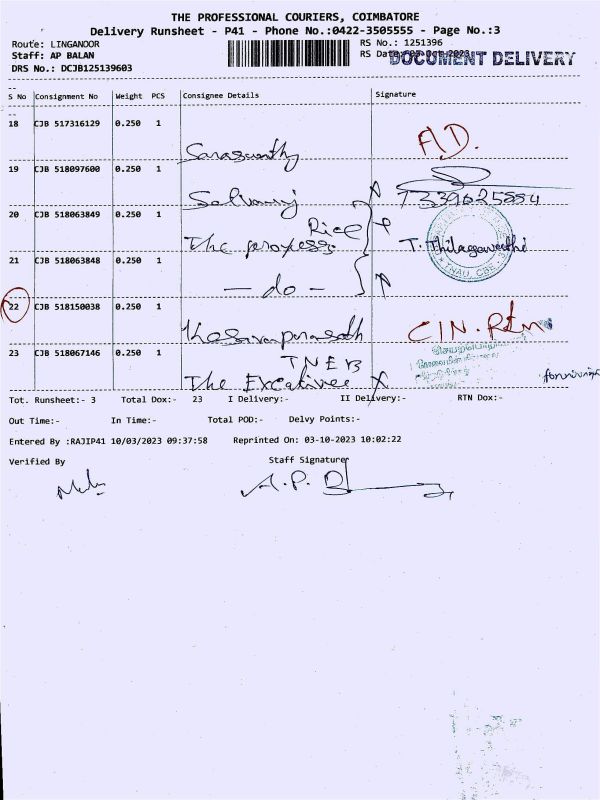 THE PROFESSIONAL COURIERS, COIMBATORE
Delivery Runsheet - P41 - Phone No.:0422-3505555 - Page No.:3
Route: LINGANOOR
RS No.: 1251396
Staff: AP BALAN
RS Date
DOCUMENT DELIVERY
DRS No.: DCJB125139603
S No Consignment No Weight PCS Consignee Details Signature
18 CJB 517316129 0.250 1
Saraswathy
19 CJB 518097600 0.250 1
Selvaraj
20 CJB 518063849 0.250 1
Rice
The
T. Thilagawathi
TNAU, CBE - 3
21 CJB 518063848 0.250 1
- do -
22 CJB 518150038 0.250 1
CIN. Rtn
23 CJB 518067146 0.250 1
TNEB
The
Tot. Runsheet:- 3 Total Dox:- 23 I Delivery:- II Delivery:- RTN Dox:-
Out Time:- In Time:- Total POD:- Delvy Points:-
Entered By :RAJIP41 10/03/2023 09:37:58 Reprinted On: 03-10-2023 10:02:22
Verified By Staff Signature
A.P. B